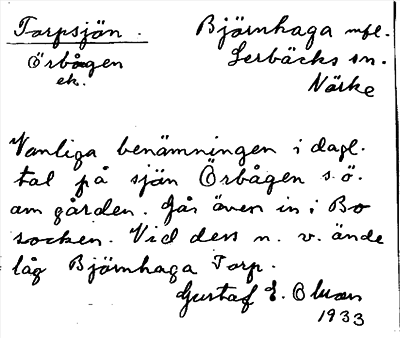 Torpsjön.
Björnhaga mfl.
Örbågen
ek.
Lerbäcks sn.
Närke
Vanliga benämningen i dagl.
tal på sjön Örbågen s.ö.
om gården. Går även in i Bo
socken. Vid dess n. v. ände
låg Björnhaga Torp.
Gustaf E. Olsson
1933